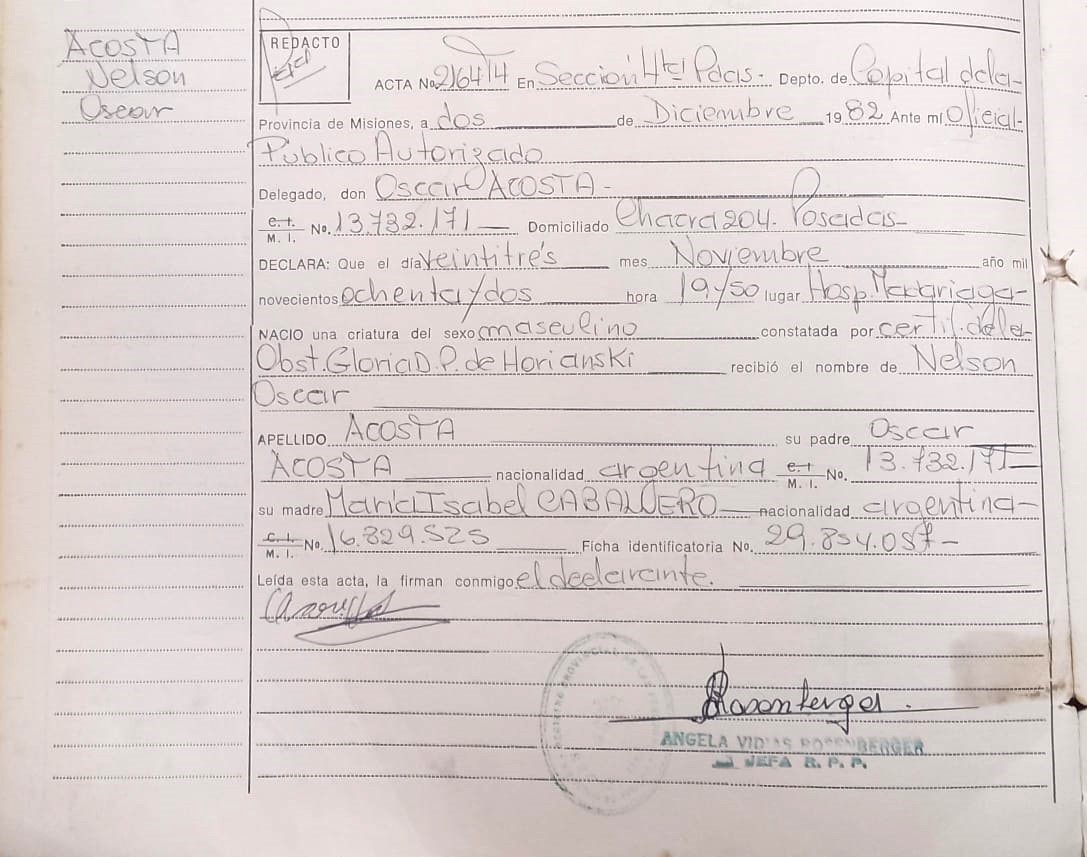 ACOSTA
Nelson
Oscar
REDACTO
ACTA No. 2164 T4 En Sección Htal Pdas. - Depto. de Capital de la -
Provincia de Misiones, a dos de Diciembre 19 82 Ante mí Oficial
Público Autorizado
Delegado, don Oscar ACOSTA -
c. i.
M. I. No. 13.732.171 Domiciliado Chacra 204. Posadas -
DECLARA: Que el día veintitrés mes Noviembre año mil
novecientos ochenta y dos hora 19 y 50 lugar Hosp. Madariaga -
NACIO una criatura del sexo masculino constatada por certif. de la
Obst. Gloria D. P. de Horianski recibió el nombre de Nelson
Oscar
APELLIDO ACOSTA su padre Oscar
ACOSTA nacionalidad argentina c. i. M. I. No. 13.732.171
su madre María Isabel CABALLERO nacionalidad argentina -
c. i.
M. I. No. 16.829.525 Ficha identificatoria No. 29.854.057 -
Leída esta acta, la firman conmigo el declarante.
Rosenberger
ANGELA VIDAS ROSENBERGER
JEFA R. P. P.